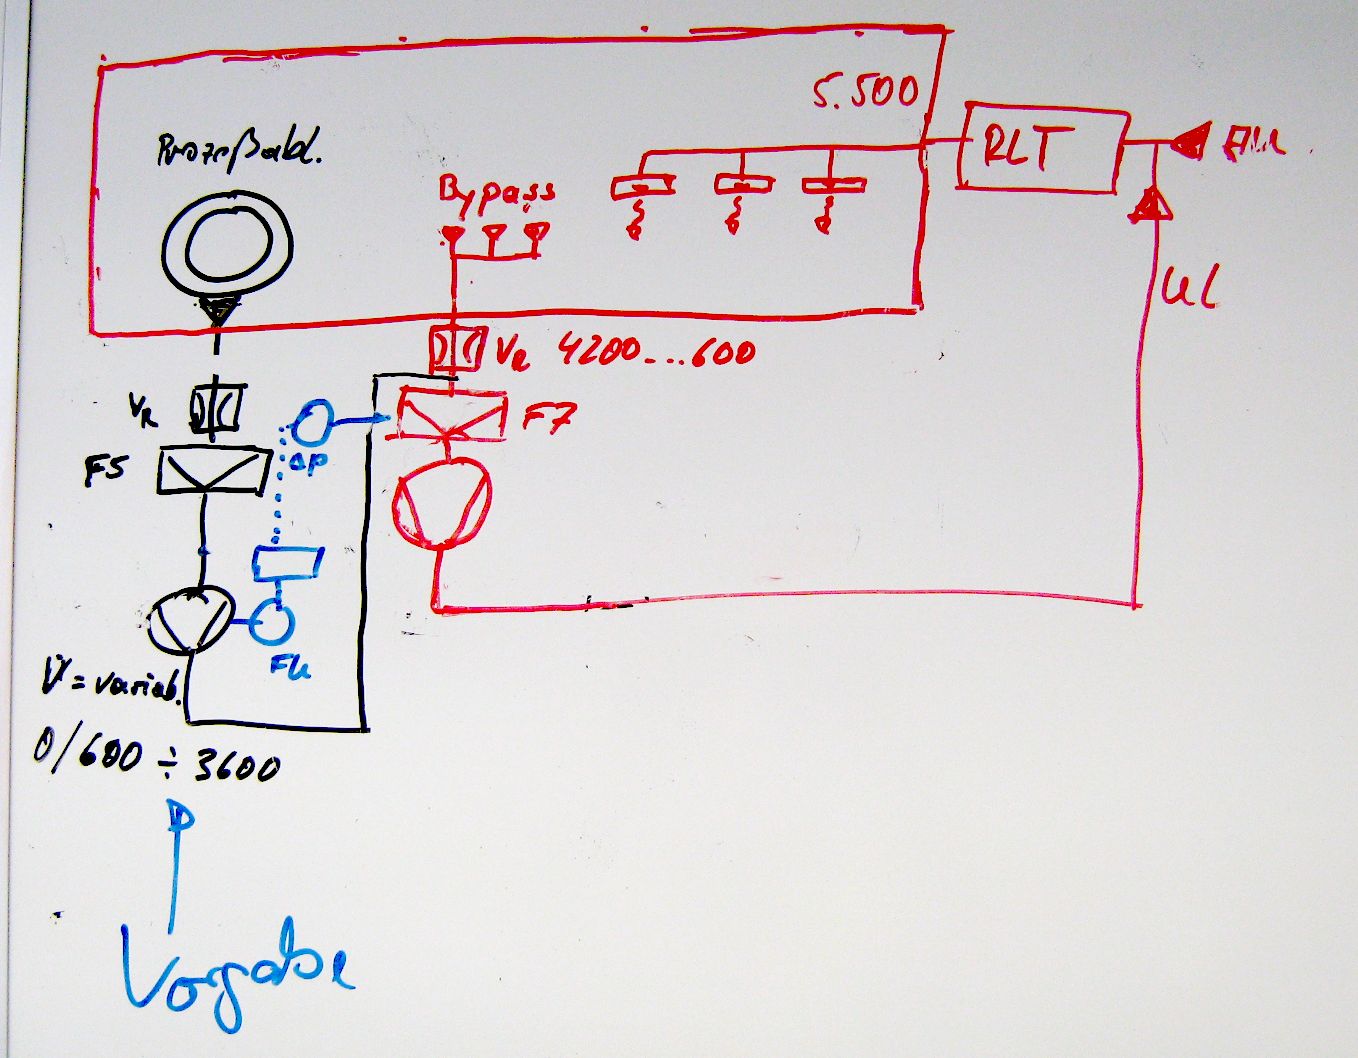 5.500
Prozeßabl.
RLT
AU
Bypass
UL
VR 4200...600
VR
F7
F5
ΔP
FU
V̇ = variab.
0/600 ÷ 3600
Vorgabe